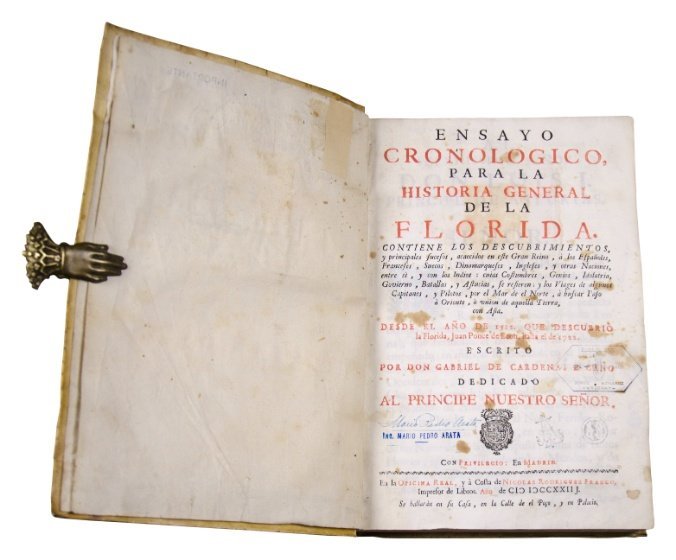 ENSAYO
CRONOLOGICO,
PARA LA
HISTORIA GENERAL
DE LA
FLORIDA.
CONTIENE LOS DESCUBRIMIENTOS,
y principales sucesos, acaecidos en este Gran Reino, à los Españoles,
Franceses, Suecos, Dinamarqueses, Ingleses, y otras Naciones,
entre sì, y con los Indios: cuias Costumbres, Genios, Idolatria,
Govierno, Batallas, y Astucias, se refieren: y los Viages de algunos
Capitanes, y Pilotos, por el Mar de el Norte, à buscar Paso
à Oriente, ò vnion de aquella Tierra,
con Asia.
DESDE EL AÑO DE QUE DESCUBRIÒ
la Florida, Juan Ponce de Leon, hasta el de 1722.
ESCRITO
POR DON GABRIEL DE CARDENAS Z CANO
DEDICADO
AL PRINCIPE NUESTRO SEÑOR.
Mario Pedro Arata
ING. MARIO PEDRO ARATA
CON PRIVILEGIO: En MADRID.
En la OFICINA REAL, y à Costa de NICOLAS RODRIGUEZ FRANCO,
Impresor de Libros. Año de CIↃ IↃCCXXIIJ.
Se hallaràn en su Casa, en la Calle de el Poço, y en Palacio.